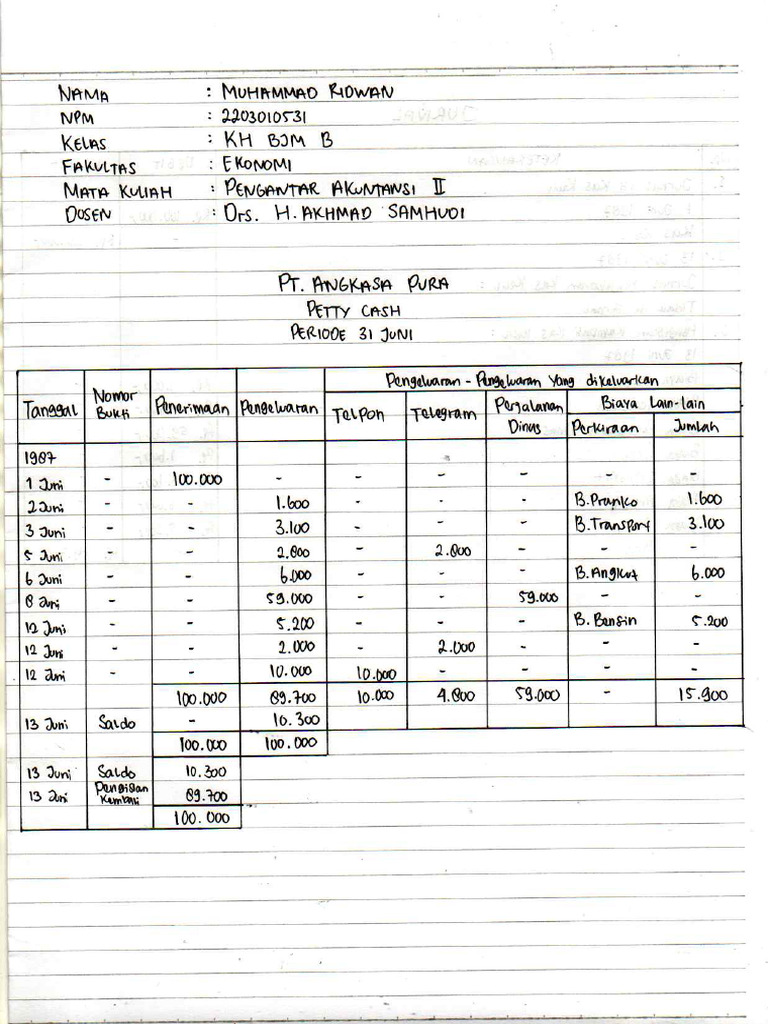 NAMA : MUHAMMAD RIDWAN
NPM : 2203010531
KELAS : KH BJM B
FAKULTAS : EKONOMI
MATA KULIAH : PENGANTAR AKUNTANSI II
DOSEN : Drs. H. AKHMAD SAMHUDI
PT. ANGKASA PURA
PETTY CASH
PERIODE 31 JUNI
Tanggal Nomor Bukti Penerimaan Pengeluaran Pengeluaran - Pengeluaran Yang dikeluarkan
Telpon Telegram Perjalanan Dinas Biaya Lain-lain
Perkiraan Jumlah
1987
1 Juni - 100.000 - - - - - -
2 Juni - - 1.600 - - - B. Pranko 1.600
3 Juni - - 3.100 - - - B. Transport 3.100
5 Juni - - 2.800 - 2.800 - - -
6 Juni - - 6.000 - - - B. Angkut 6.000
8 Juni - - 59.000 - - 59.000 - -
10 Juni - - 5.200 - - - B. Bensin 5.200
12 Juni - - 2.000 - 2.000 - - -
12 Juni - - 10.000 10.000 - - - -
100.000 89.700 10.000 4.800 59.000 - 15.900
13 Juni Saldo - 10.300
100.000 100.000
13 Juni Saldo 10.300
13 Juni Pengisian Kembali 89.700
100.000